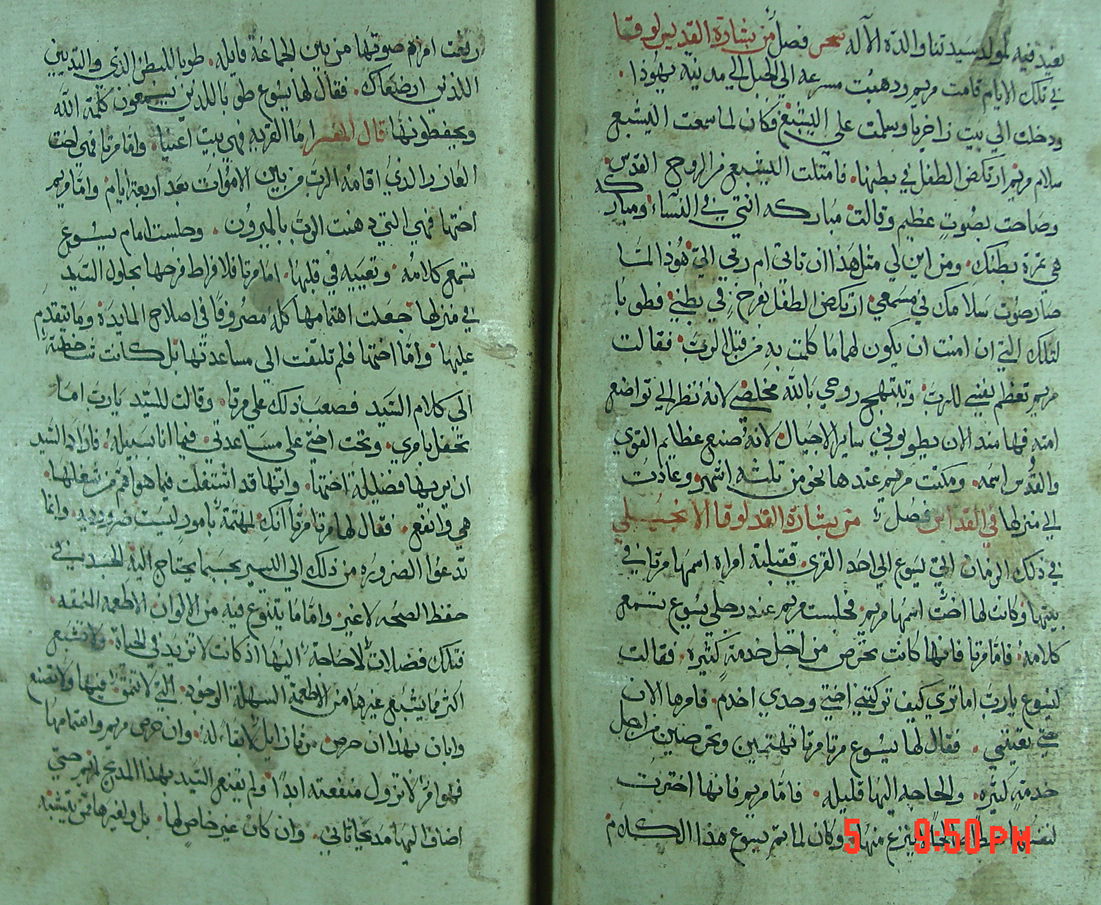 نعيد فيه لمولد سيدتنا والدة الاله سحر فصل من بشارة القديس لوقا
في تلك الايام قامت مريم ودهبت مسرعه الي الجبل الي مدينه يهودا.
ودخلت الي بيت زاخريا وسلمت علي اليشبع فكان لما سمعت اليشبع
سلام مريم ارتكض الطفل في بطنها. فامتلت اليشبع من الروح القدس.
وصاحت بصوت عظيم وقالت مباركه انتي في النساء ومباركه
هي تمرة بطنك. ومن اين لي مثل هذا ان تاتي ام ربي الي هوذا لما
صار صوت سلامك في مسمعي ارتكض الطفل بفرح في بطني فطوبا
لتلك التي امنت ان يكون لها ما كلمت به من قبل الرب. فقالت
مريم تعظم نفسي للرب. وتبتهج روحي بالله مخلصي لانه نظر الي تواضع
امته فها مند الان يطوبوني ساير الاجيال لانه صنع عظايم القوي
والقدس اسمه. ومكتت مريم عندها نحو من تلته اشهر وعادت
الي منزلها في القداس فصل من بشارة القد لوقا الانجيلي
في ذلك الزمان اتي يسوع الي احد القري. فقبلته امراه اسمها مرتا في
بيتها وكان لها اخت اسمها مريم. فجلست مريم عند رجلي يسوع تسمع
كلامه. فاما مرتا فانها كانت تحرص من اجل خدمه كتيره. فقالت
ليسوع يارب اما تري كيف تركتني اختي وحدي اخدم. فامرها الان
حتي تعينني. فقال لها يسوع مرتا مرتا تهتمين وتحرصين من اجل
خدمة كتيره. والحاجه اليها قليله. فاما مريم فانها اختارت
لنفسها ينزع منها. وكان لما تم يسوع هذا الكلام
رفعت امراه صوتها من بين الجماعة قايله. طوبا للبطن الذي والتديين
اللدين ارضعاك. فقال لها يسوع طوبا للدين يسمعون كلمة الله
ويحفظونها قال المفسر اما القريه فهي بيت عنيا. واما مرتا فهي اخت
العازر الذي اقامه الرب من بين الاموات بعد اربعة ايام. واما مريم
اختها فهي التي دهنت الرب بالميرون. وجلست امام يسوع
تسمع كلامه. وتعيبه في قلبها. اما مرتا فلافراط فرحها بحلول السيد
في منزلها جعلت اهتمامها كله مصروفا في اصلاح المايدة وما يتقدم
عليها. واما اختها فلم تلتفت الي مساعدتها بل كانت
الي كلام السيد فصعب ذلك علي مرتا. وقالت للسيد يارب اما
تحفل بامري. وتحت اختي علي مساعدتي فيما انا بسبيله. فاراد السيد
ان يريها فضيلة اختها. وانها قد اشتغلت فيما هو اهم من شغلها.
هي وانفع. فقال لها مرتا مرتا انك لمهتمة بامور ليست ضروريه. وانما
تدعوا الضروره من ذلك الي اليسير بحسبما يحتاج اليه الجسد في
حفظ الصحه لا غير. واما ما يتنوع فيه من الالوان الاطعمه
فتلك فضلات لا حاجة اليها اذ كانت لا تزيد في الحياة. ولا تشبع
اكثر مما يشبع غيرها من الاطعمة السهلة الوجود.
وابان بهذا ان حرص مرتا زايل لا بقا له. وان حرص مريم واهتمامها
فهو امر لا تزول منفعته ابدا. ولم يقنع السيد بهذا المديح لمريم حتي
اضاف اليها مديحا تاني. وان كان غير خاص لها. بل ولغيرها
5 9:50 PM